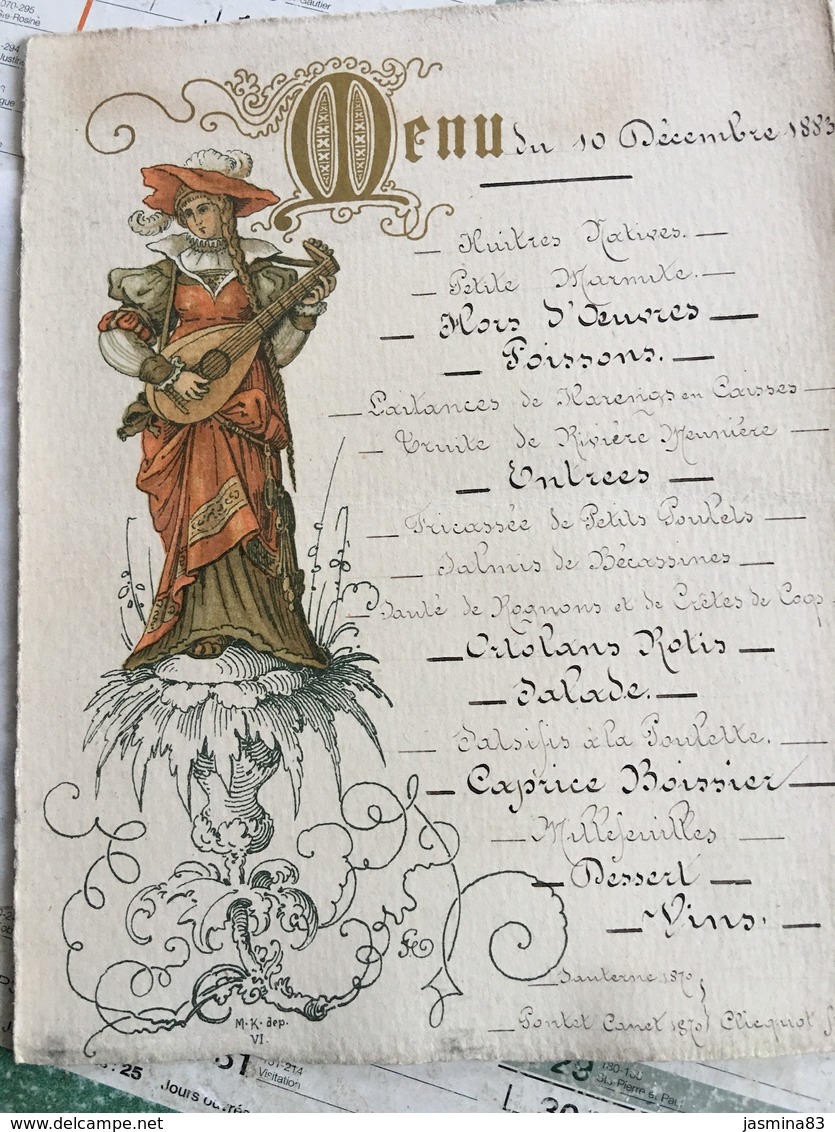 070-295
294
Gautier
Menu du 10 Décembre 1883
— Huitres Natives. —
— Petite Marmite. —
— Hors d'Œuvres —
— Poissons. —
— Laitances de Harengs en Caisses —
— Truite de Rivière Meunière —
— Entrees —
— Fricassée de Petits Poulets —
— Salmis de Bécassines —
— Sauté de Rognons et de Crêtes de Coqs —
— Ortolans Rotis —
— Salade. —
— Salsifis à la Poulette. —
— Caprice Boissier —
— Millefeuilles —
— Dessert —
— Vins. —
— Sauterne 1870,
— Pontet Canet 1870, Clicquot
M.K. dep.
VI.
: 25
31
151-214
Visitation
Jours
23
180-180
St-Pierre
L
30
jasmina83